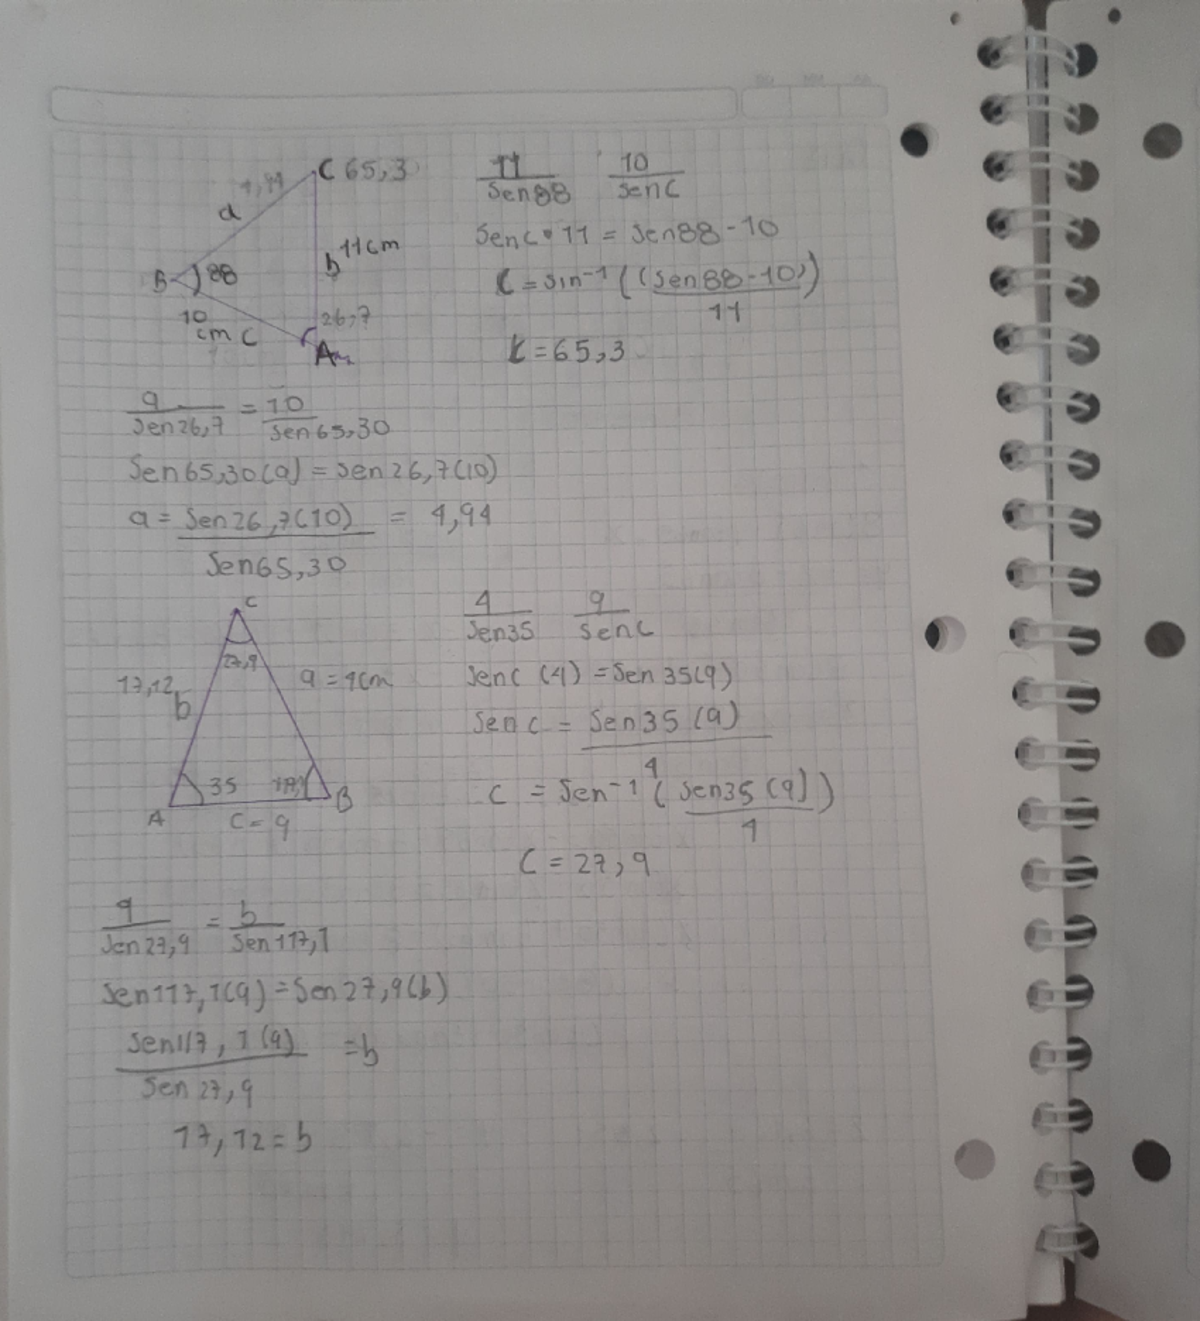 C 65,3
4,94
a
B 88
b 11cm
10
cm C
26,7
A
11/Sen88 10/SenC
SenC • 11 = Sen88-10
C = Sin⁻¹((Sen88-10)/11)
C = 65,3
a/Sen26,7 = 10/Sen65,30
Sen65,30(a) = Sen26,7(10)
a = Sen26,7(10)/Sen65,30 = 4,94
C
27,9
17,12
b
a = 4cm
A 35 B
C = 9
4/Sen35 9/SenC
SenC (4) = Sen35(9)
SenC = Sen35(9)/4
C = Sen⁻¹(Sen35(9)/4)
C = 27,9
9/Sen27,9 = b/Sen117,1
Sen117,1(9) = Sen27,9(b)
Sen117,1(9)/Sen27,9 = b
17,12 = b